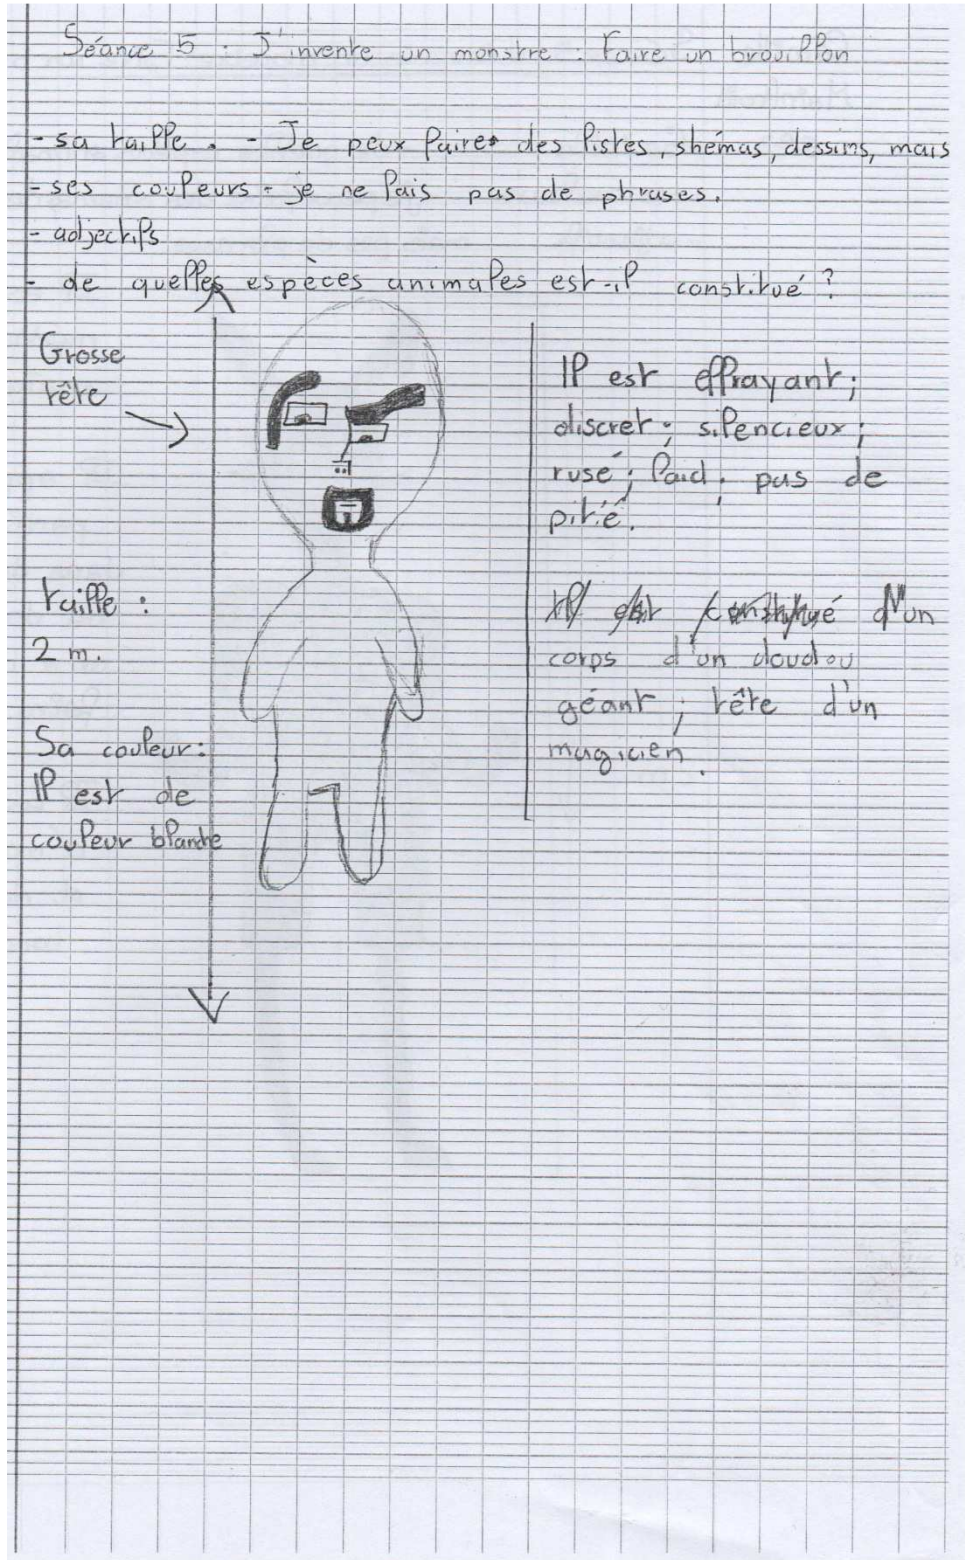 Séance 5 : J'invente un monstre : Faire un brouillon
- sa taille. - Je peux faire des listes, shémas, dessins, mais
- ses couleurs - je ne fais pas de phrases.
- adjectifs
- de quelles espèces animales est-il constitué ?
Grosse
tête
taille :
2 m.
Sa couleur :
Il est de
couleur blanche
Il est effrayant ;
discret ; silencieux ;
rusé ; laid ; pas de
pitié.
d'un
corps d'un doudou
géant ; tête d'un
magicien.